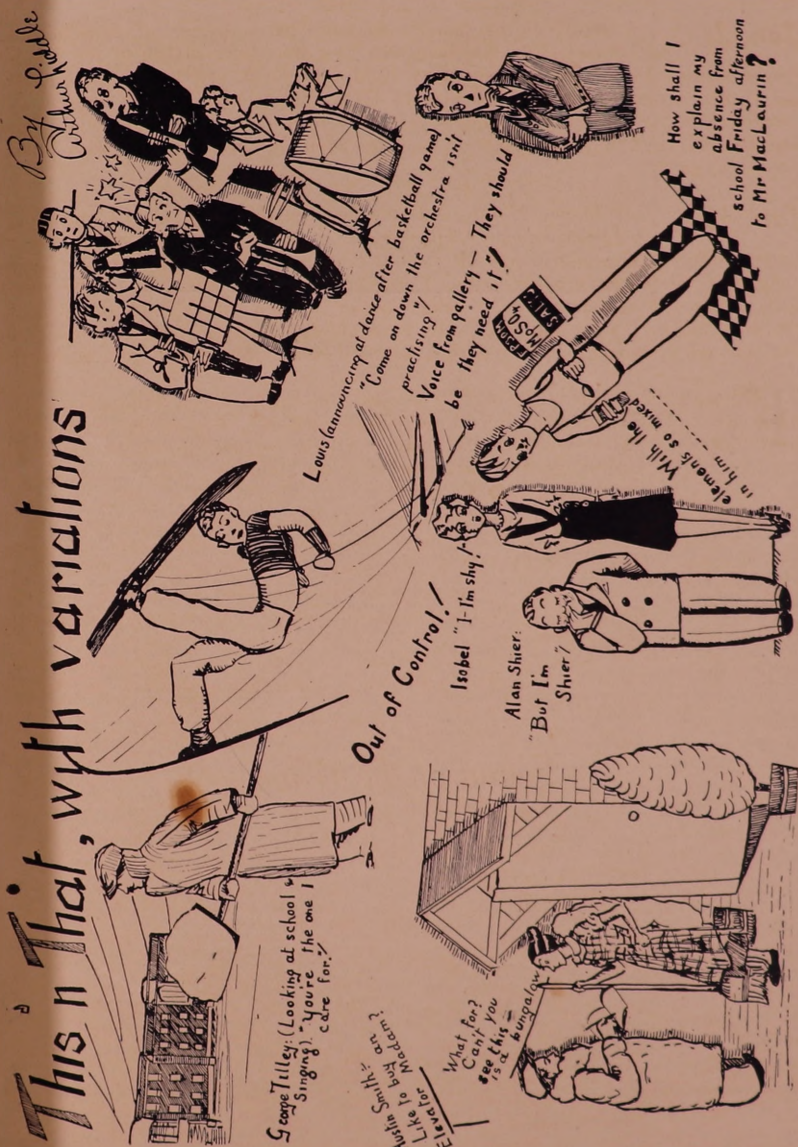 This 'n That, with variations
By
Arthur Liddle
George Tilley: (Looking at school &
Singing). "You're the one I
care for."
Out of Control!
Louis (announcing at dance after basketball game)
"Come on down the orchestra isn't
practising"!
Voice from gallery — They should
be they need it"!
ustin Smith:-
Like to buy an
Elevator Madam?
"What for?
Can't you
see this =
is a bungalow
Isobel "I-I'm shy!
Alan Shier:
"But I'm
Shier"
EPSOM
MgSO4
SALTS
With the
elements so mixed
in him
How shall I
explain my
absence from
school Friday afternoon
to Mr MacLaurin?